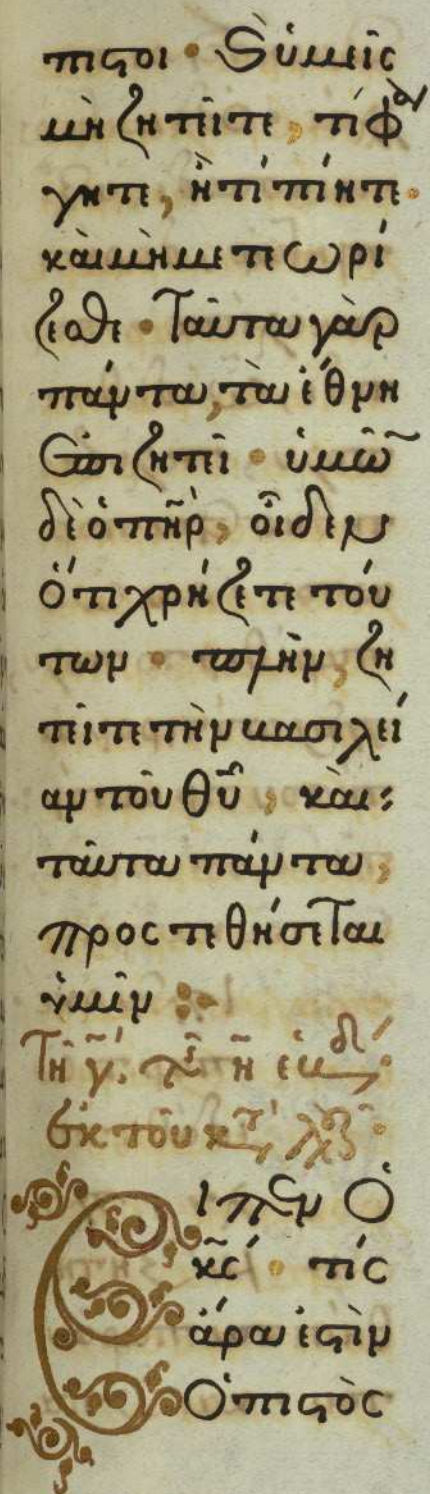 πιστοι · ϗ ὑμεῖς
μὴ ζητεῖτε, τί φά
γητε, ἢ τί πίητε·
καὶ μὴ μετεωρί
ζεσθε · Ταῦτα γὰρ
πάντα, τὰ ἔθνη
ἐπιζητεῖ · ὑμῶ̅
δὲ ὁ πη̅ρ, οἶδεν
ὅτι χρήζετε τού
των · πλὴν, ζη
τεῖτε τὴν βασιλεί
αν τοῦ θυ̅, καὶ:
ταῦτα πάντα,
προστεθήσεται
ὑμῖν :·
Τῇ γ̅. τ η̅ ἑβδ·
Ἐκ τοῦ κτ λκ·
Εἶπεν ὁ
κς̅ · τίς
ἄρα ἐστὶν
ὁ πιστὸς